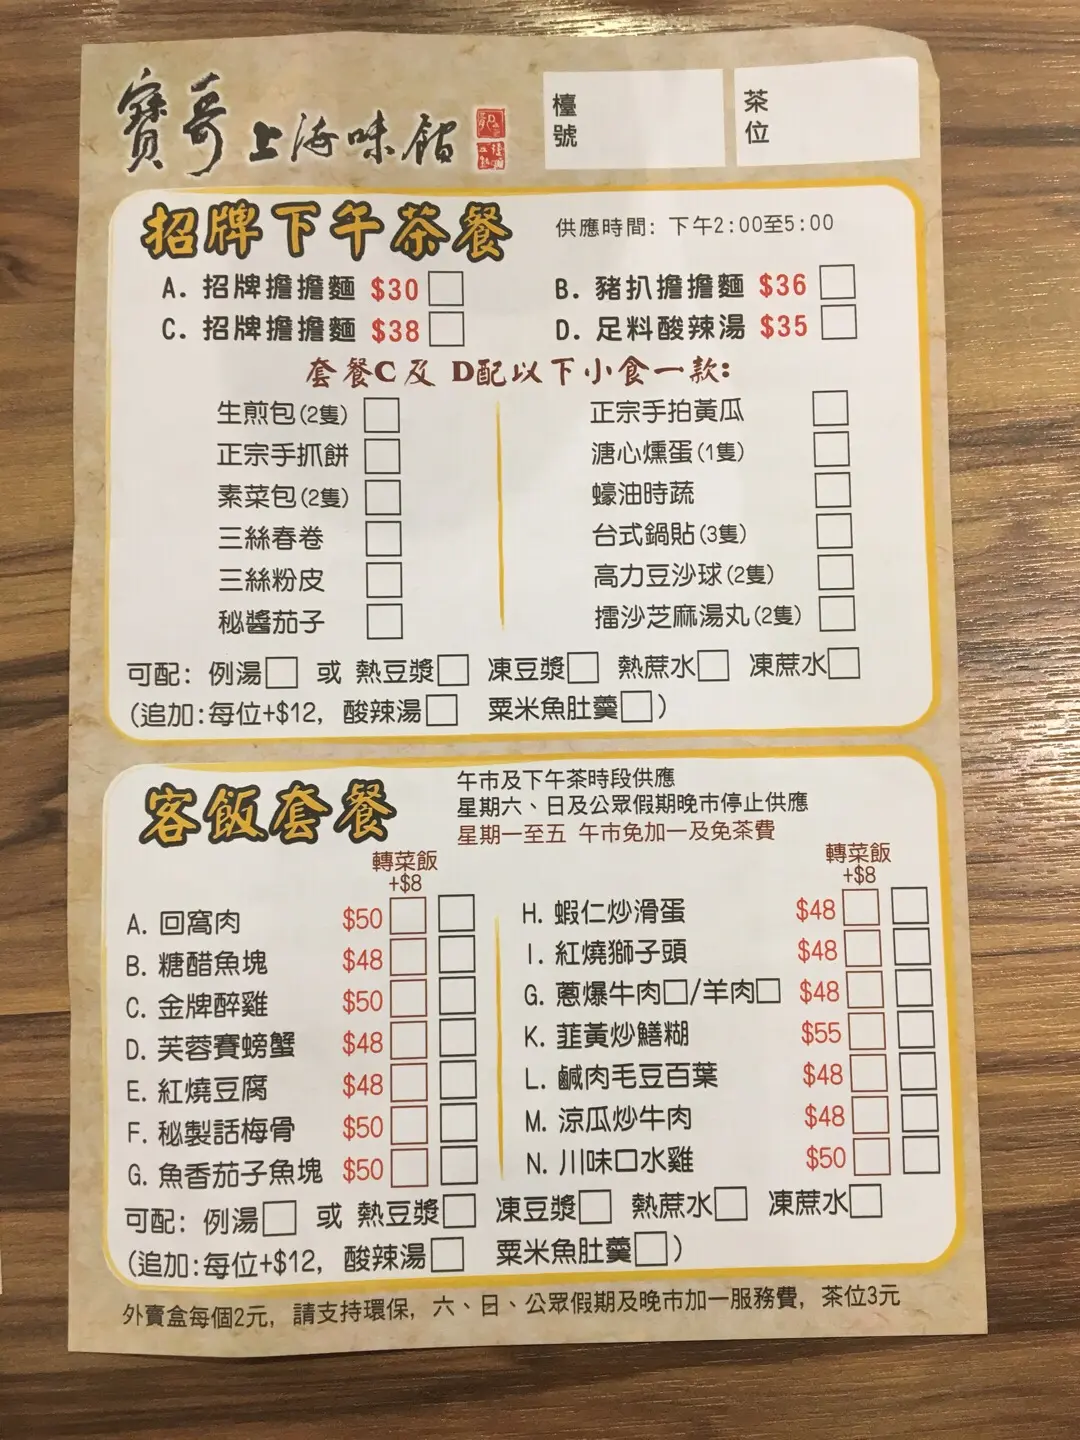 寶哥上海味館
檯號
茶位
招牌下午茶餐
供應時間: 下午2:00至5:00
A. 招牌擔擔麵 $30
B. 豬扒擔擔麵 $36
C. 招牌擔擔麵 $38
D. 足料酸辣湯 $35
套餐C及 D配以下小食一款:
生煎包(2隻)
正宗手拍黃瓜
正宗手抓餅
溏心燻蛋(1隻)
素菜包(2隻)
蠔油時蔬
三絲春卷
台式鍋貼(3隻)
三絲粉皮
高力豆沙球(2隻)
秘醬茄子
擂沙芝麻湯丸(2隻)
可配: 例湯 或 熱豆漿 凍豆漿 熱蔗水 凍蔗水
(追加:每位+$12, 酸辣湯 粟米魚肚羹)
客飯套餐
午市及下午茶時段供應
星期六、日及公眾假期晚市停止供應
星期一至五 午市免加一及免茶費
轉菜飯
+$8
轉菜飯
+$8
A. 回窩肉 $50
B. 糖醋魚塊 $48
C. 金牌醉雞 $50
D. 芙蓉賽螃蟹 $48
E. 紅燒豆腐 $48
F. 秘製話梅骨 $50
G. 魚香茄子魚塊 $50
H. 蝦仁炒滑蛋 $48
I. 紅燒獅子頭 $48
G. 蔥爆牛肉/羊肉 $48
K. 韮黃炒鱔糊 $55
L. 鹹肉毛豆百葉 $48
M. 涼瓜炒牛肉 $48
N. 川味口水雞 $50
可配: 例湯 或 熱豆漿 凍豆漿 熱蔗水 凍蔗水
(追加:每位+$12, 酸辣湯 粟米魚肚羹)
外賣盒每個2元, 請支持環保, 六、日、公眾假期及晚市加一服務費, 茶位3元